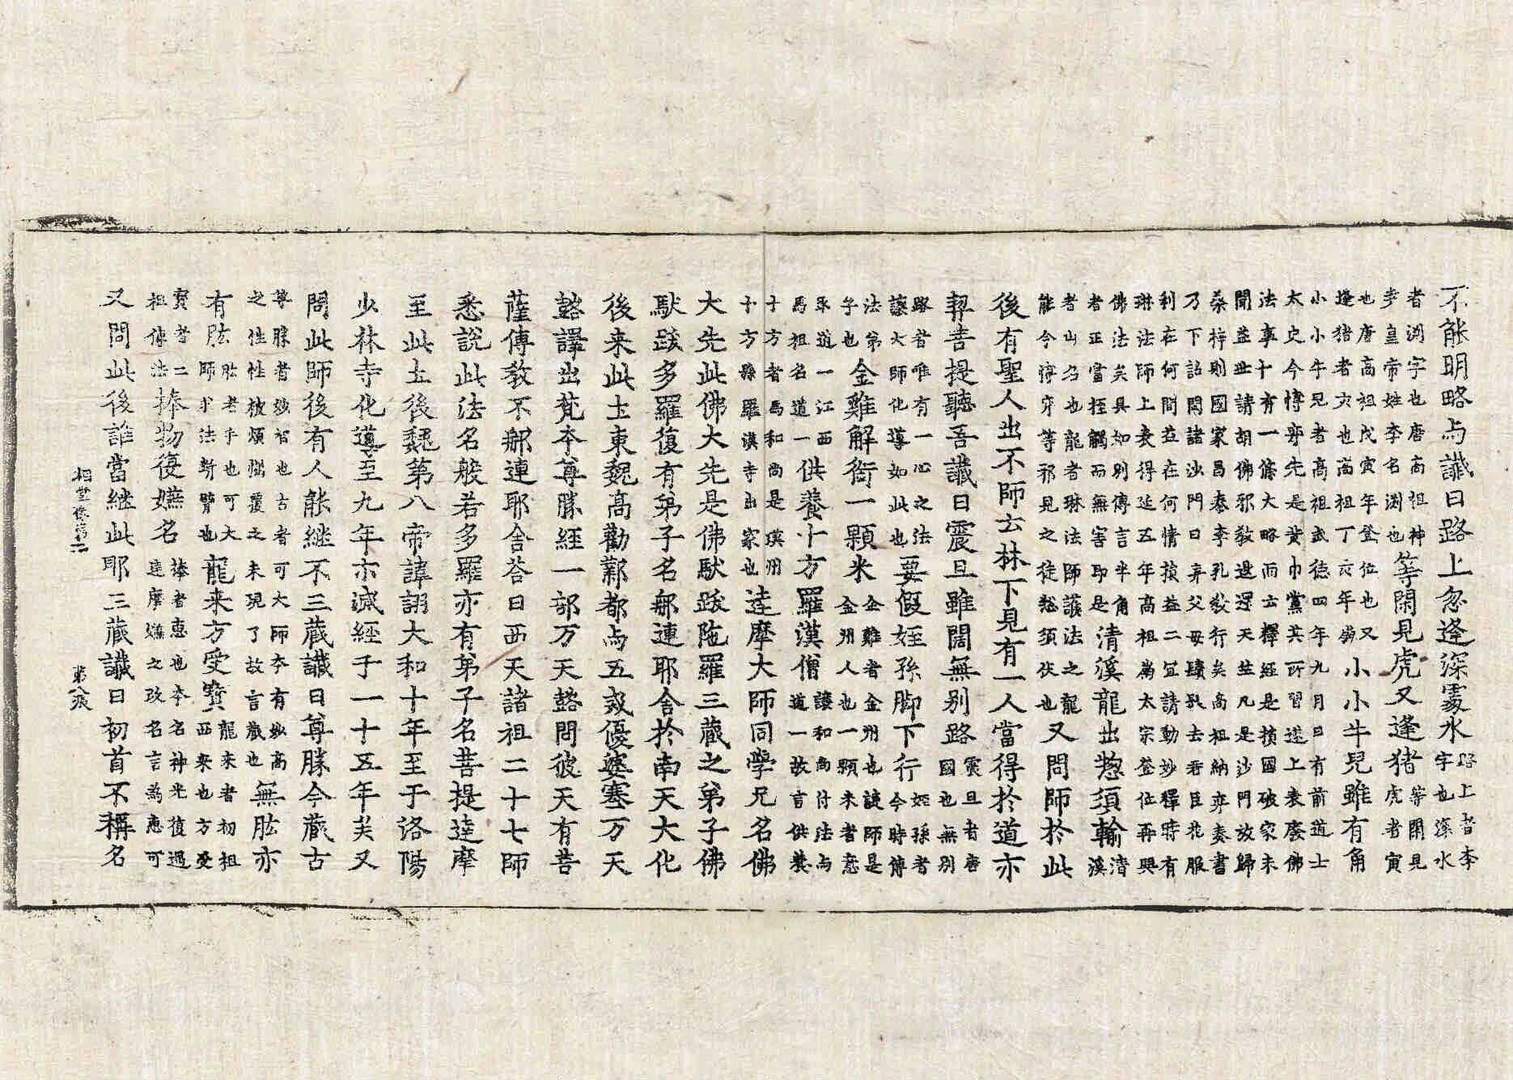 不能明略与讖曰路上忽逢深處水路上者李
字也深水
者渊字也唐高祖神
尭皇帝姓李名渊也等閑見虎又逢猪等閑見
虎者寅
也唐高祖戊寅年登位也又
逢猪者亥也高祖丁亥年崩小小牛兒雖有角
小小牛兒者高祖武德四年九月日有前道士
太史令愽弈先是黄巾黨其所習遂上表廢佛
法事十有一條大略而云釋經是損國破家未
聞益世請胡佛邪教退還天竺凡是沙門放歸
桒梓則國家昌泰李孔教行矣高祖納弈奏書
乃下詔問諸沙門曰弃父母鬚髮去君臣花服
利在何問益在何情損益二宜請動妙釋時有
琳法師上表得延五年高祖為太宗登位再興
佛法矣具如別傳言半角
者正當抂觸而無害助是清溪龍出惣湏輸清
溪
者山名也龍者琳法師護法之龍
能令滓穿等邪見之徒惣湏伏也又問師於此
後有聖人出不師云林下見有一人當得於道亦
契菩提聽吾讖曰震旦雖闊無別路震旦者唐
國也無別
路者唯有一心之法
讓大師化導如此也要假姪孫脚下行姪孫者
今時傳
法弟
子也金雞解銜一顆米金雞者金州也讓師是
金州人也一顆米者意
承道一江西
馬祖名道一供養十方羅漢僧讓和尚付法与
道一故言供養
十方者馬和尚是漢州
十方縣羅漢寺出家也達摩大師同學兄名佛
大先此佛大先是佛馱跋陁羅三藏之弟子佛
馱跋多羅復有弟子名郍連耶舍於南天大化
後来此土東魏高勸鄴都与五戒優婆塞万天
懿譯出梵本尊勝經一部万天懿問彼天有菩
薩傳教不郍連耶舍荅曰西天諸祖二十七師
悉說此法名般若多羅亦有弟子名菩提達摩
至此土後魏第八帝諱詡大和十年至于洛陽
少林寺化導至九年亦滅経于一十五年矣又
問此師後有人能継不三藏讖曰尊勝今藏古
尊勝者妙智也古者可大師本有妙高
之性性被煩惱覆之未現了故言藏也無肱亦
有肱肱者手也可大
師求法斬臂也龍来方受寳龍来者初祖
西来也方受
寳者二
祖傳法捧物復嫌名捧者惠也本名神光復遇
達摩嫌之改名言為惠可
又問此後誰當継此耶三藏讖曰初首不稱名
柤堂集第二 第八張